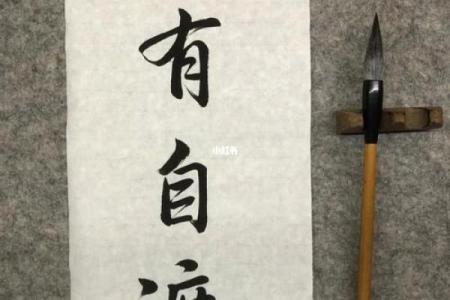 有
自
渡
小红书